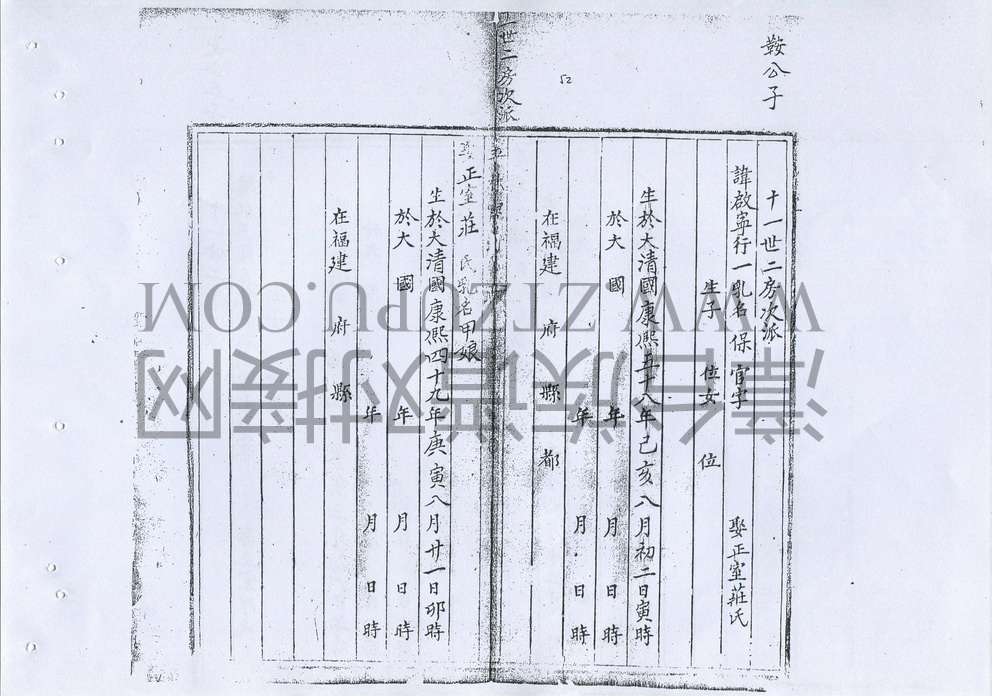 鞍公子
十一世二房次派
諱啟寧行一乳名保官字 娶正室莊氏
生子 位女 位
生於大清國康熙五十八年己亥八月初二日寅時
於大 國 年 月 日 時
年 月 日 時
在福建 府 縣 都
52
一世二房次派
娶正室莊 氏乳名甲娘
生於大清國康熙四十九年庚寅八月廿一日卯時
於大 國 年 月 日 時
年 月 日 時
在福建 府 縣
漳台族谱对接网
WWW.ZTZUPU.COM